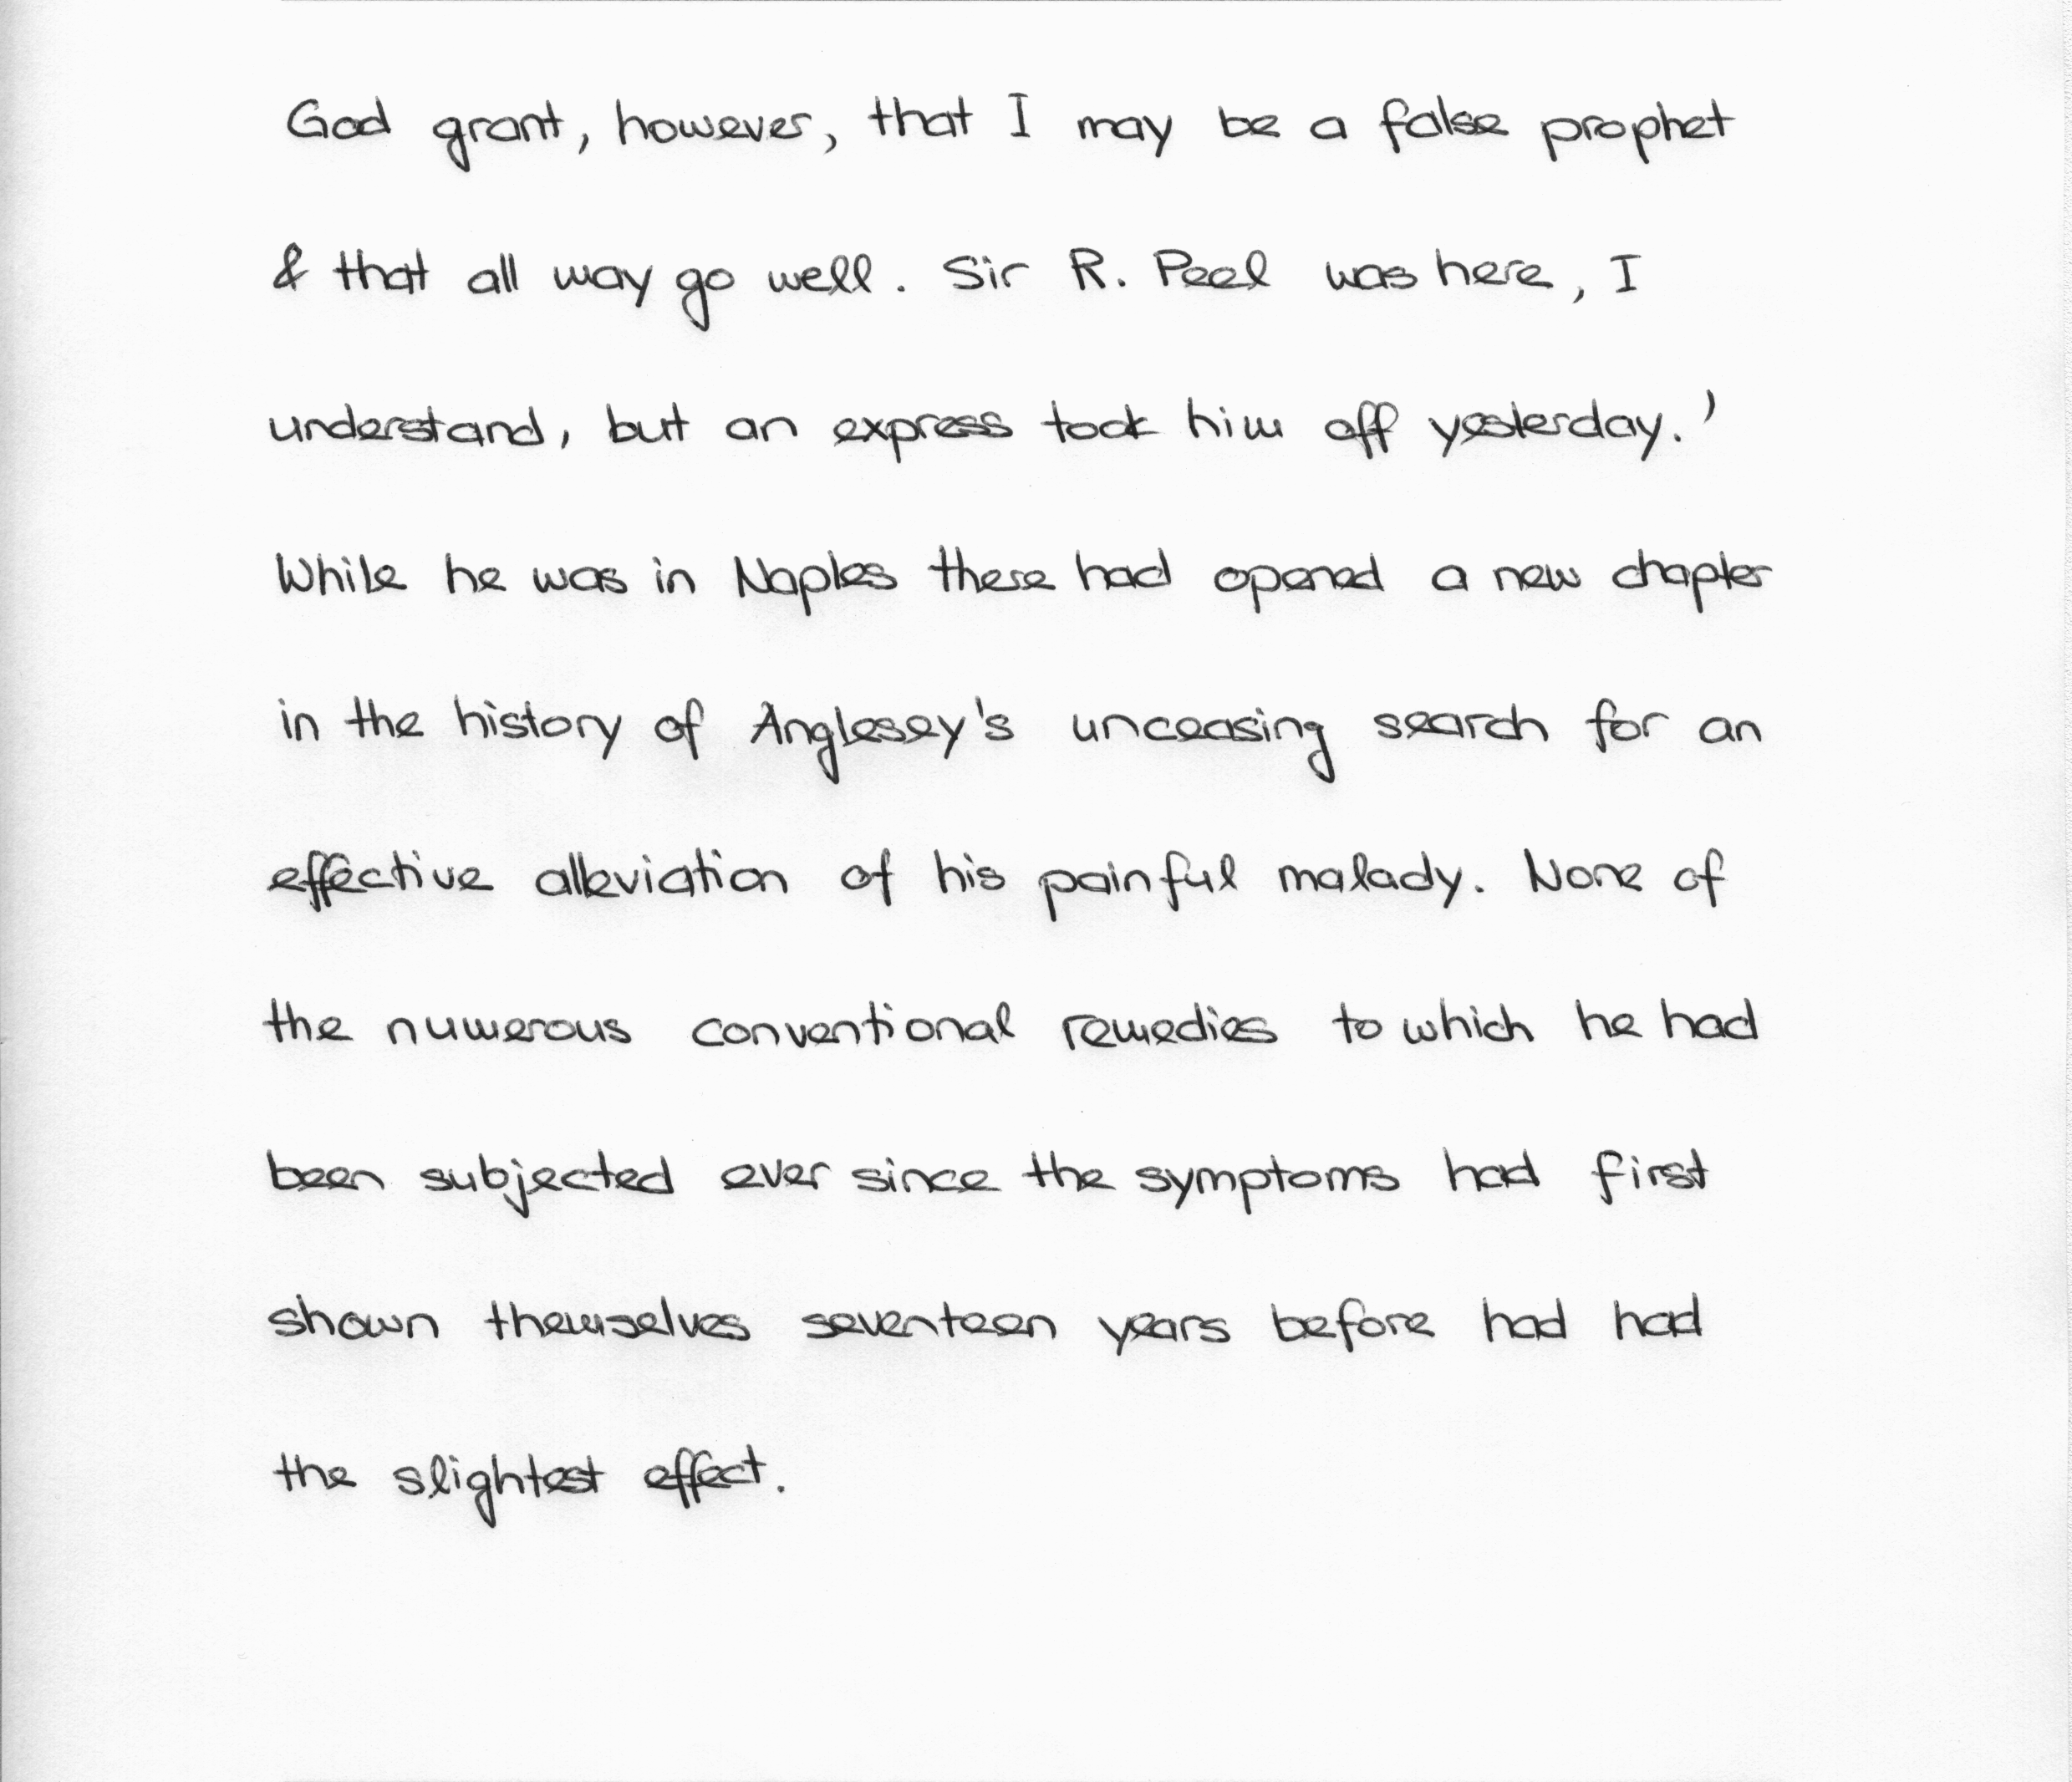 God grant, however, that I may be a false prophet
& that all may go well. Sir R. Peel was here, I
understand, but an express took him off yesterday.'
While he was in Naples there had opened a new chapter
in the history of Anglesey's unceasing search for an
effective alleviation of his painful malady. None of
the numerous conventional remedies to which he had
been subjected ever since the symptoms had first
shown themselves seventeen years before had had
the slightest effect.